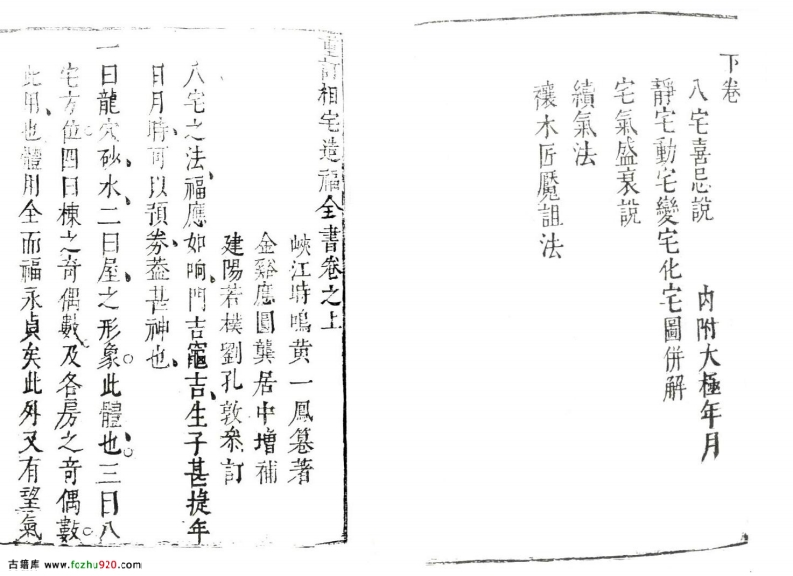 下卷
八宅喜忌說 內附大極年月
靜宅動宅變宅化宅圖併解
宅氣盛衰說
續氣法
禳木匠魘詛法
重訂相宅造福全書卷之上
峽江時鳴黃一鳳纂著
金谿應圓龔居中增補
建陽若樸劉孔敦叅訂
八宅之法、福應如响、門吉竈吉、生子甚捷、年
日月時、可以預券、葢甚神也、
一曰龍穴砂水、二曰屋之形象。此體也、三曰八
宅方位。四曰棟之奇偶數、及各房之奇偶數。
此用也。體用全而福永貞矣。此外又有望氣
古籍库 www.fczhu920.com